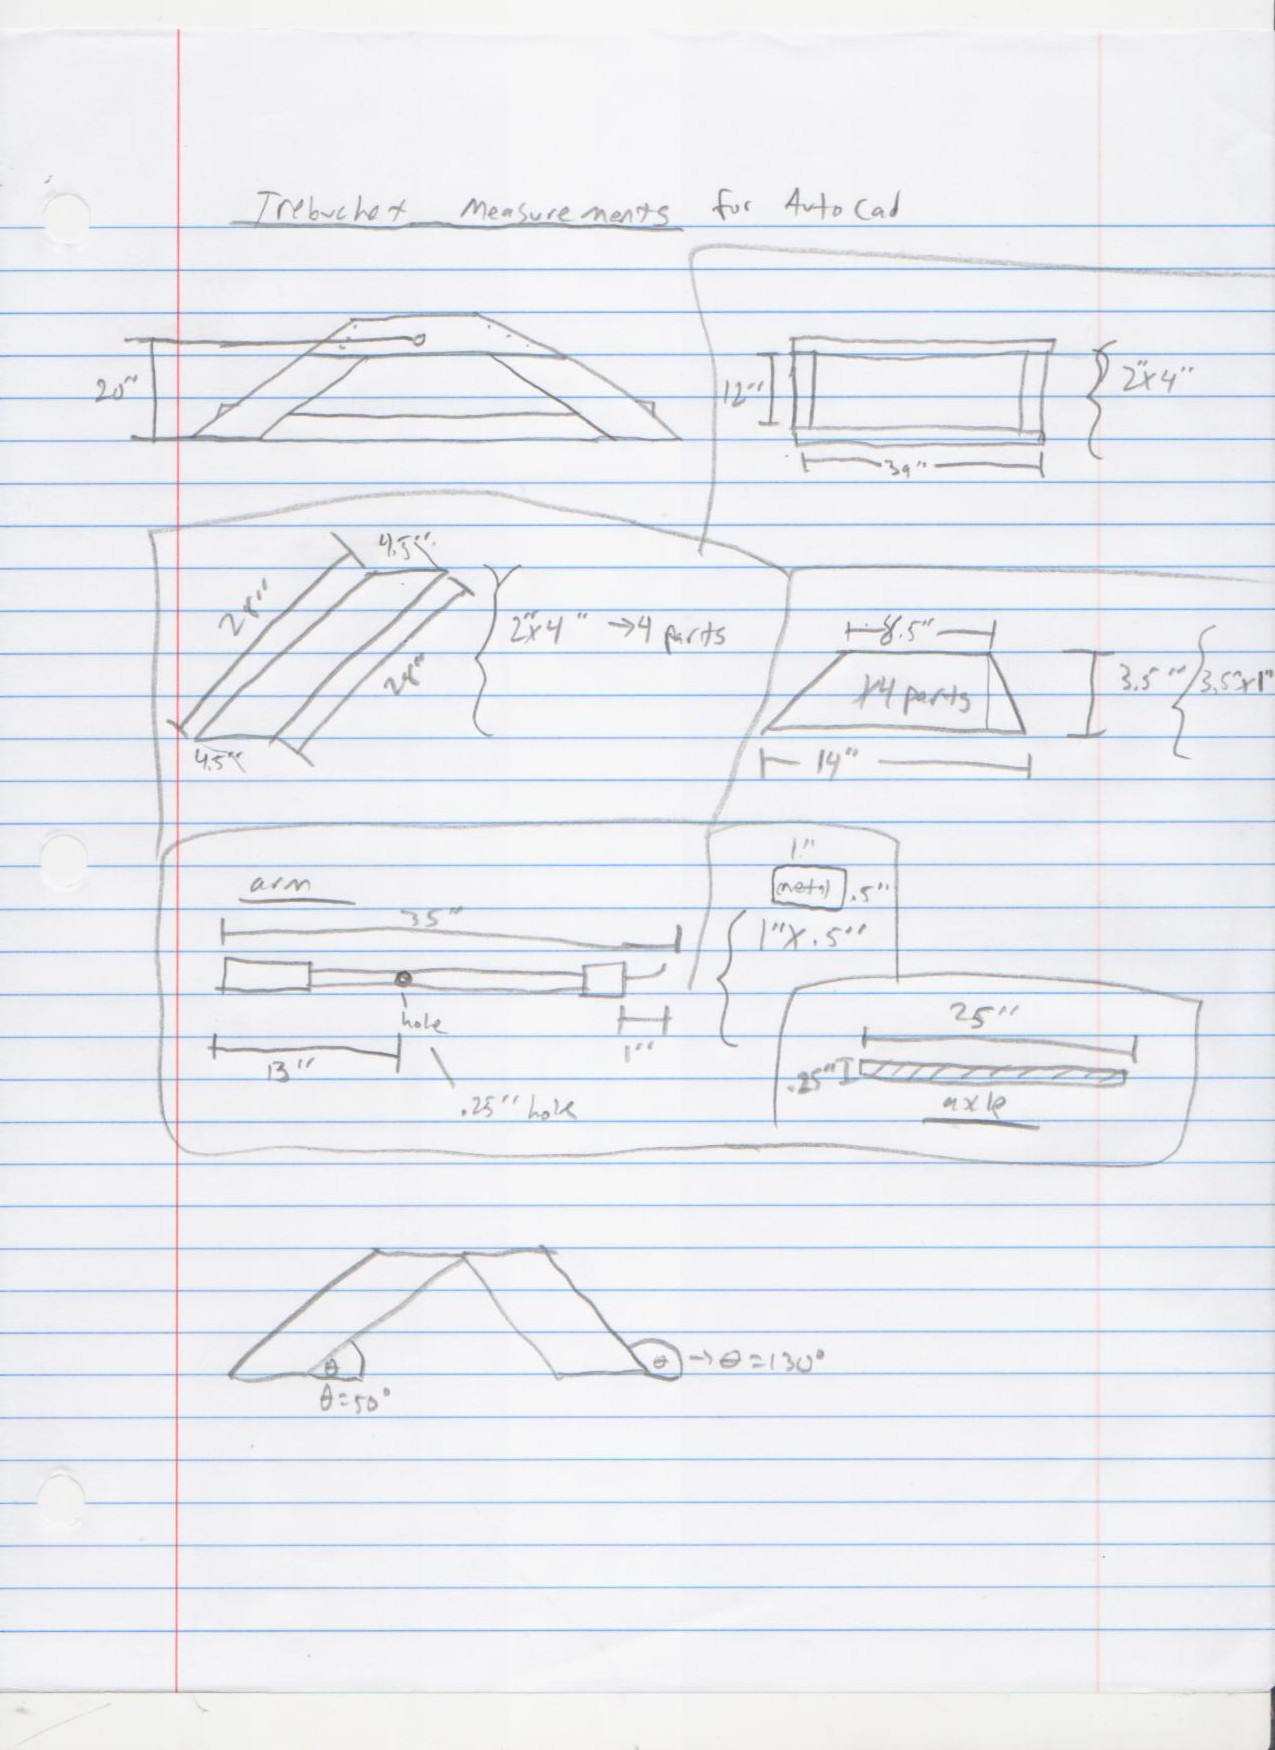 Trebuchet Measurements for AutoCad
20"
12"
2"x4"
39"
4.5"
28"
28"
2"x4" →4 parts
4.5"
8.5"
x4 parts
3.5"
3.5"x1"
14"
arm
35"
hole
13"
1"
.25" hole
1"
metal
.5"
1"x.5"
25"
.25"
axle
θ
θ=50°
θ →θ=130°